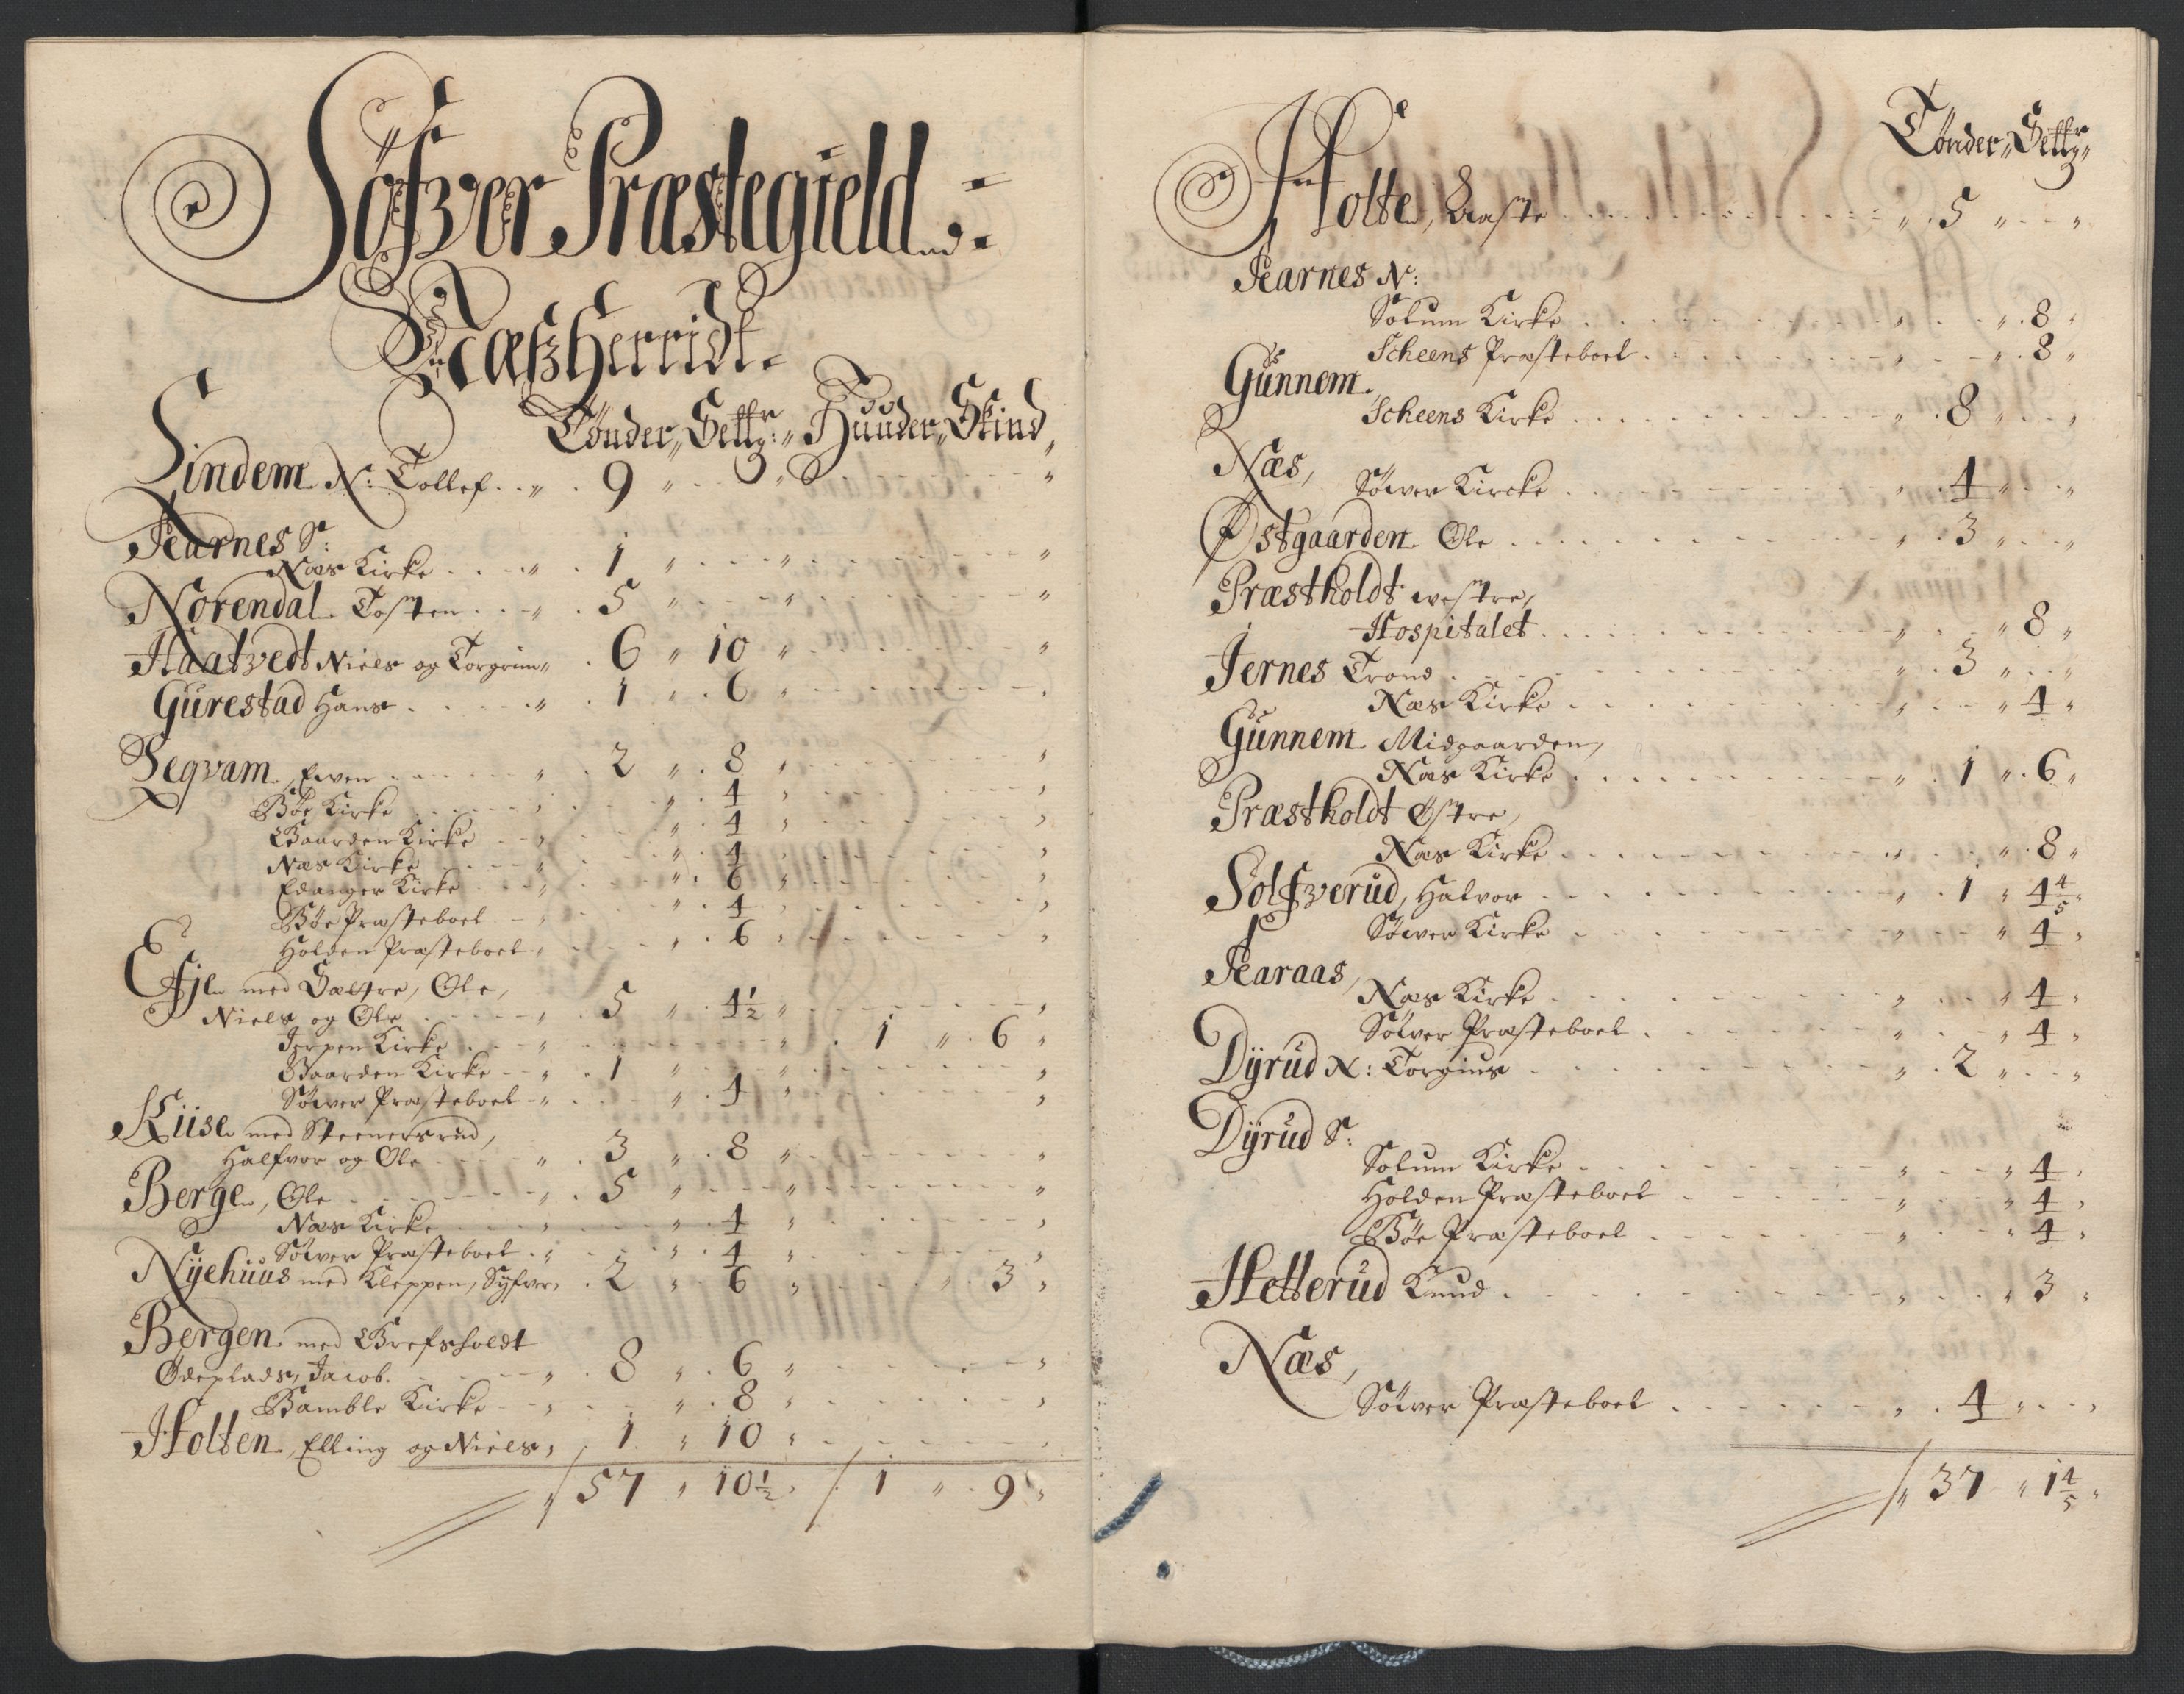 Søfver Præstegield
Næss Herridt.
Tønder, Settg: Huuder, Skind
Lindem N: Tollef 9
Aarnes S:
Næs Kirke 1
Nørendal Tosten 5
Haatvedt Niels og Torgrim 6 10
Gurestad Hans 1 6
Seqvam, Even 2 8
Bøe Kirke 4
Gaarden Kirke 4
Næs Kirke 4
Edanger Kirke 6
Bøe Præsteboel 4
Holden Præsteboel 6
Efje med Sæltre, Ole,
Niels og Ole 5 4½
Jerpen Kirke 1 6
Gaarden Kirke 1
Søwer Præsteboel 4
Kiise med Steenersrud,
Halfvor og Ole 3 8
Berge, Ole 5
Næs Kirke 4
Søwer Præsteboel 4
Nyehuus med Kleppen, Syfver 2 6 3
Bergen med Grefsholdt
Ødeplads, Jacob 8 6
Bamble Kirke 8
Holten, Elling og Niels 1 10
57 10½ 1 9
Tønder, Settg
Holte, Aaste 5
Aarnes N:
Solum Kirke 8
Scheens Præsteboel 8
Gunnem
Scheens Kirke 8
Næs,
Søwer Kircke 4
Østgaarden Ole 3
Præstholdt westre,
Hospitalet 8
Jernes Trond 3
Næs Kirke 4
Gunnem Midgaarden,
Næs Kirke 1 6
Præstholdt Østre,
Næs Kirke 8
Solfverud, Halvor 1 4 4/5
Søwer Kirke 4
Aaraas,
Næs Kirke 4
Søwer Præsteboel 4
Dyrud N: Torgius 2
Dyrud S:
Solum Kirke 4
Holden Præsteboel 4
Bøe Præsteboel 4
Hetterud Knud 3
Næs,
Søwer Præsteboel 4
37 1 4/5